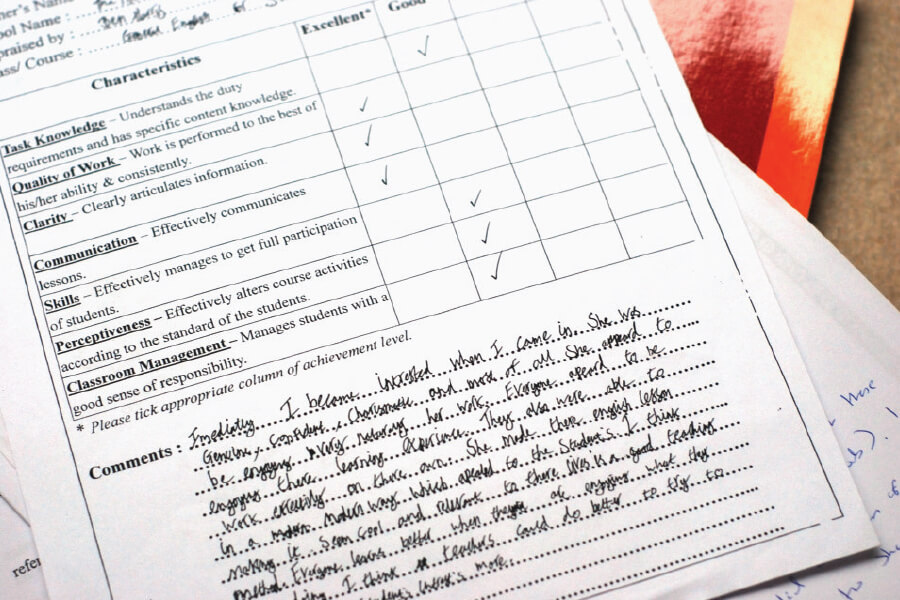 her's Name
ool Name :
praised by :
ass/ Course : General English
Characteristics
Excellent*
Good
Task Knowledge – Understands the duty
requirements and has specific content knowledge.
Quality of Work – Work is performed to the best of
his/her ability & consistently.
Clarity – Clearly articulates information.
Communication – Effectively communicates
lessons.
Skills – Effectively manages to get full participation
of students.
Perceptiveness – Effectively alters course activities
according to the standard of the students.
Classroom Management – Manages students with a
good sense of responsibility.
* Please tick appropriate column of achievement level.
Comments : Imediatly I became intrested when I came in. She was
Genuine, confident, Charismatic and most of all She appeard to
be enjoying her work. Everyone apeard to be
enjoying there learning experience. They also were able to
work effectivly on there own. She made there english lesson
in a modern ways which apealed to the Student's. I think
making it seem cool and relevant to there lives is a good teaching
method. Everyone learns better when they're enjoying what they
doing. I think teachers could do better to try to
student's interest's more.
refer